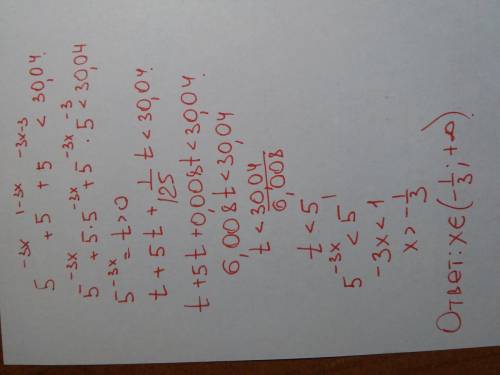 5^{-3x} + 5^{1-3x} + 5^{-3x-3} < 30,04.
5^{-3x} + 5·5^{-3x} + 5^{-3x}·5^{-3} < 30,04
5^{-3x} = t > 0
t + 5t + \frac{1}{125} t < 30,04.
t + 5t + 0,008t < 30,04.
6,008t < 30,04
t < \frac{30,04}{6,008}
t < 5
5^{-3x} < 5^{1}
-3x < 1
x > -\frac{1}{3}
Ответ: x ∈ (-\frac{1}{3}; +∞).